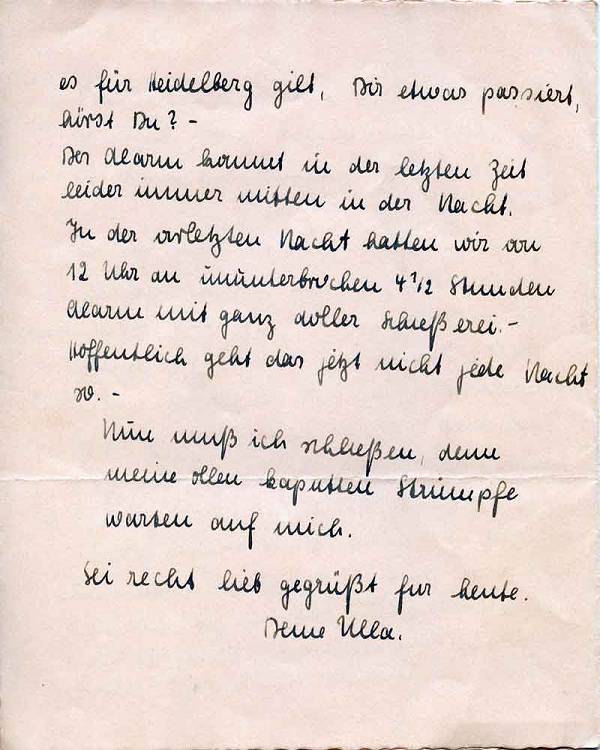 es für Heidelberg gilt, Dir etwas passiert,
hörst Du? -
Der Alarm kommt in der letzten Zeit
leider immer mitten in der Nacht.
In der vorletzten Nacht hatten wir von
12 Uhr an ununterbrochen 4 1/2 Stunden
Alarm mit ganz doller Schießerei. -
Hoffentlich geht das jetzt nicht jede Nacht
so. -
Nun muß ich schließen, denn
meine ollen kaputten Strümpfe
warten auf mich.
Sei recht lieb gegrüßt für heute.
Deine Ulla.